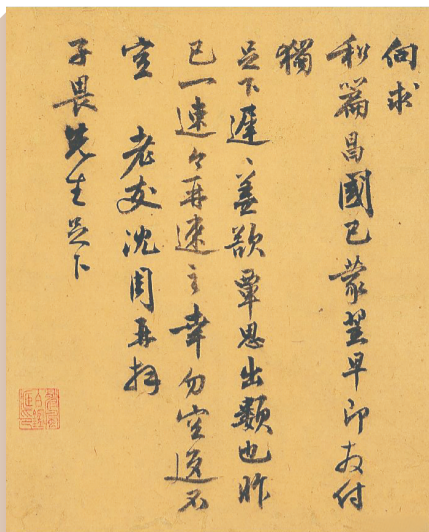 向求
和篇昌國已蒙翌早即付
獨
足下遲〻蓋欲覃思出類也昨
已一速今再速之幸勿空返不
宣　老友沈周再拜
子畏先生足下